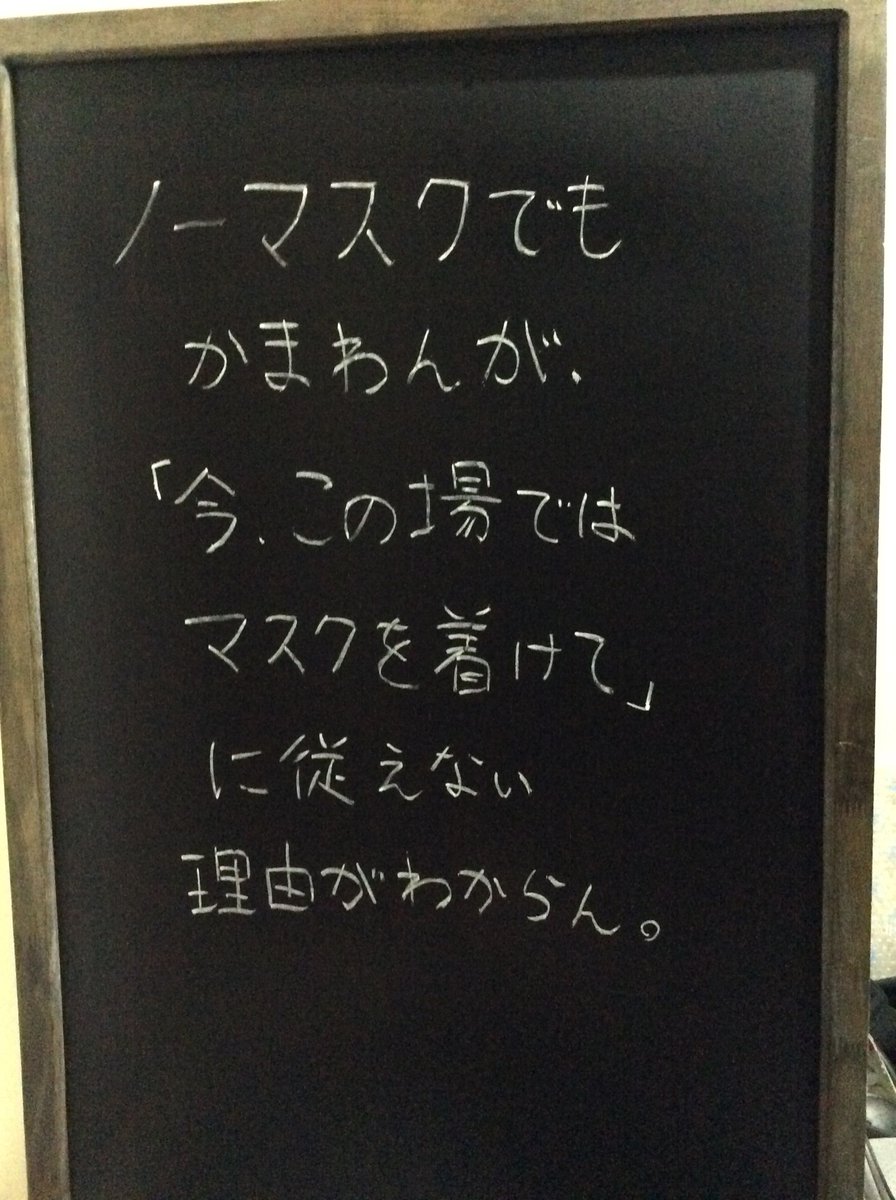 ノーマスクでも
かまわんが、
「今、この場では
マスクを着けて」
に従えない
理由がわからん。